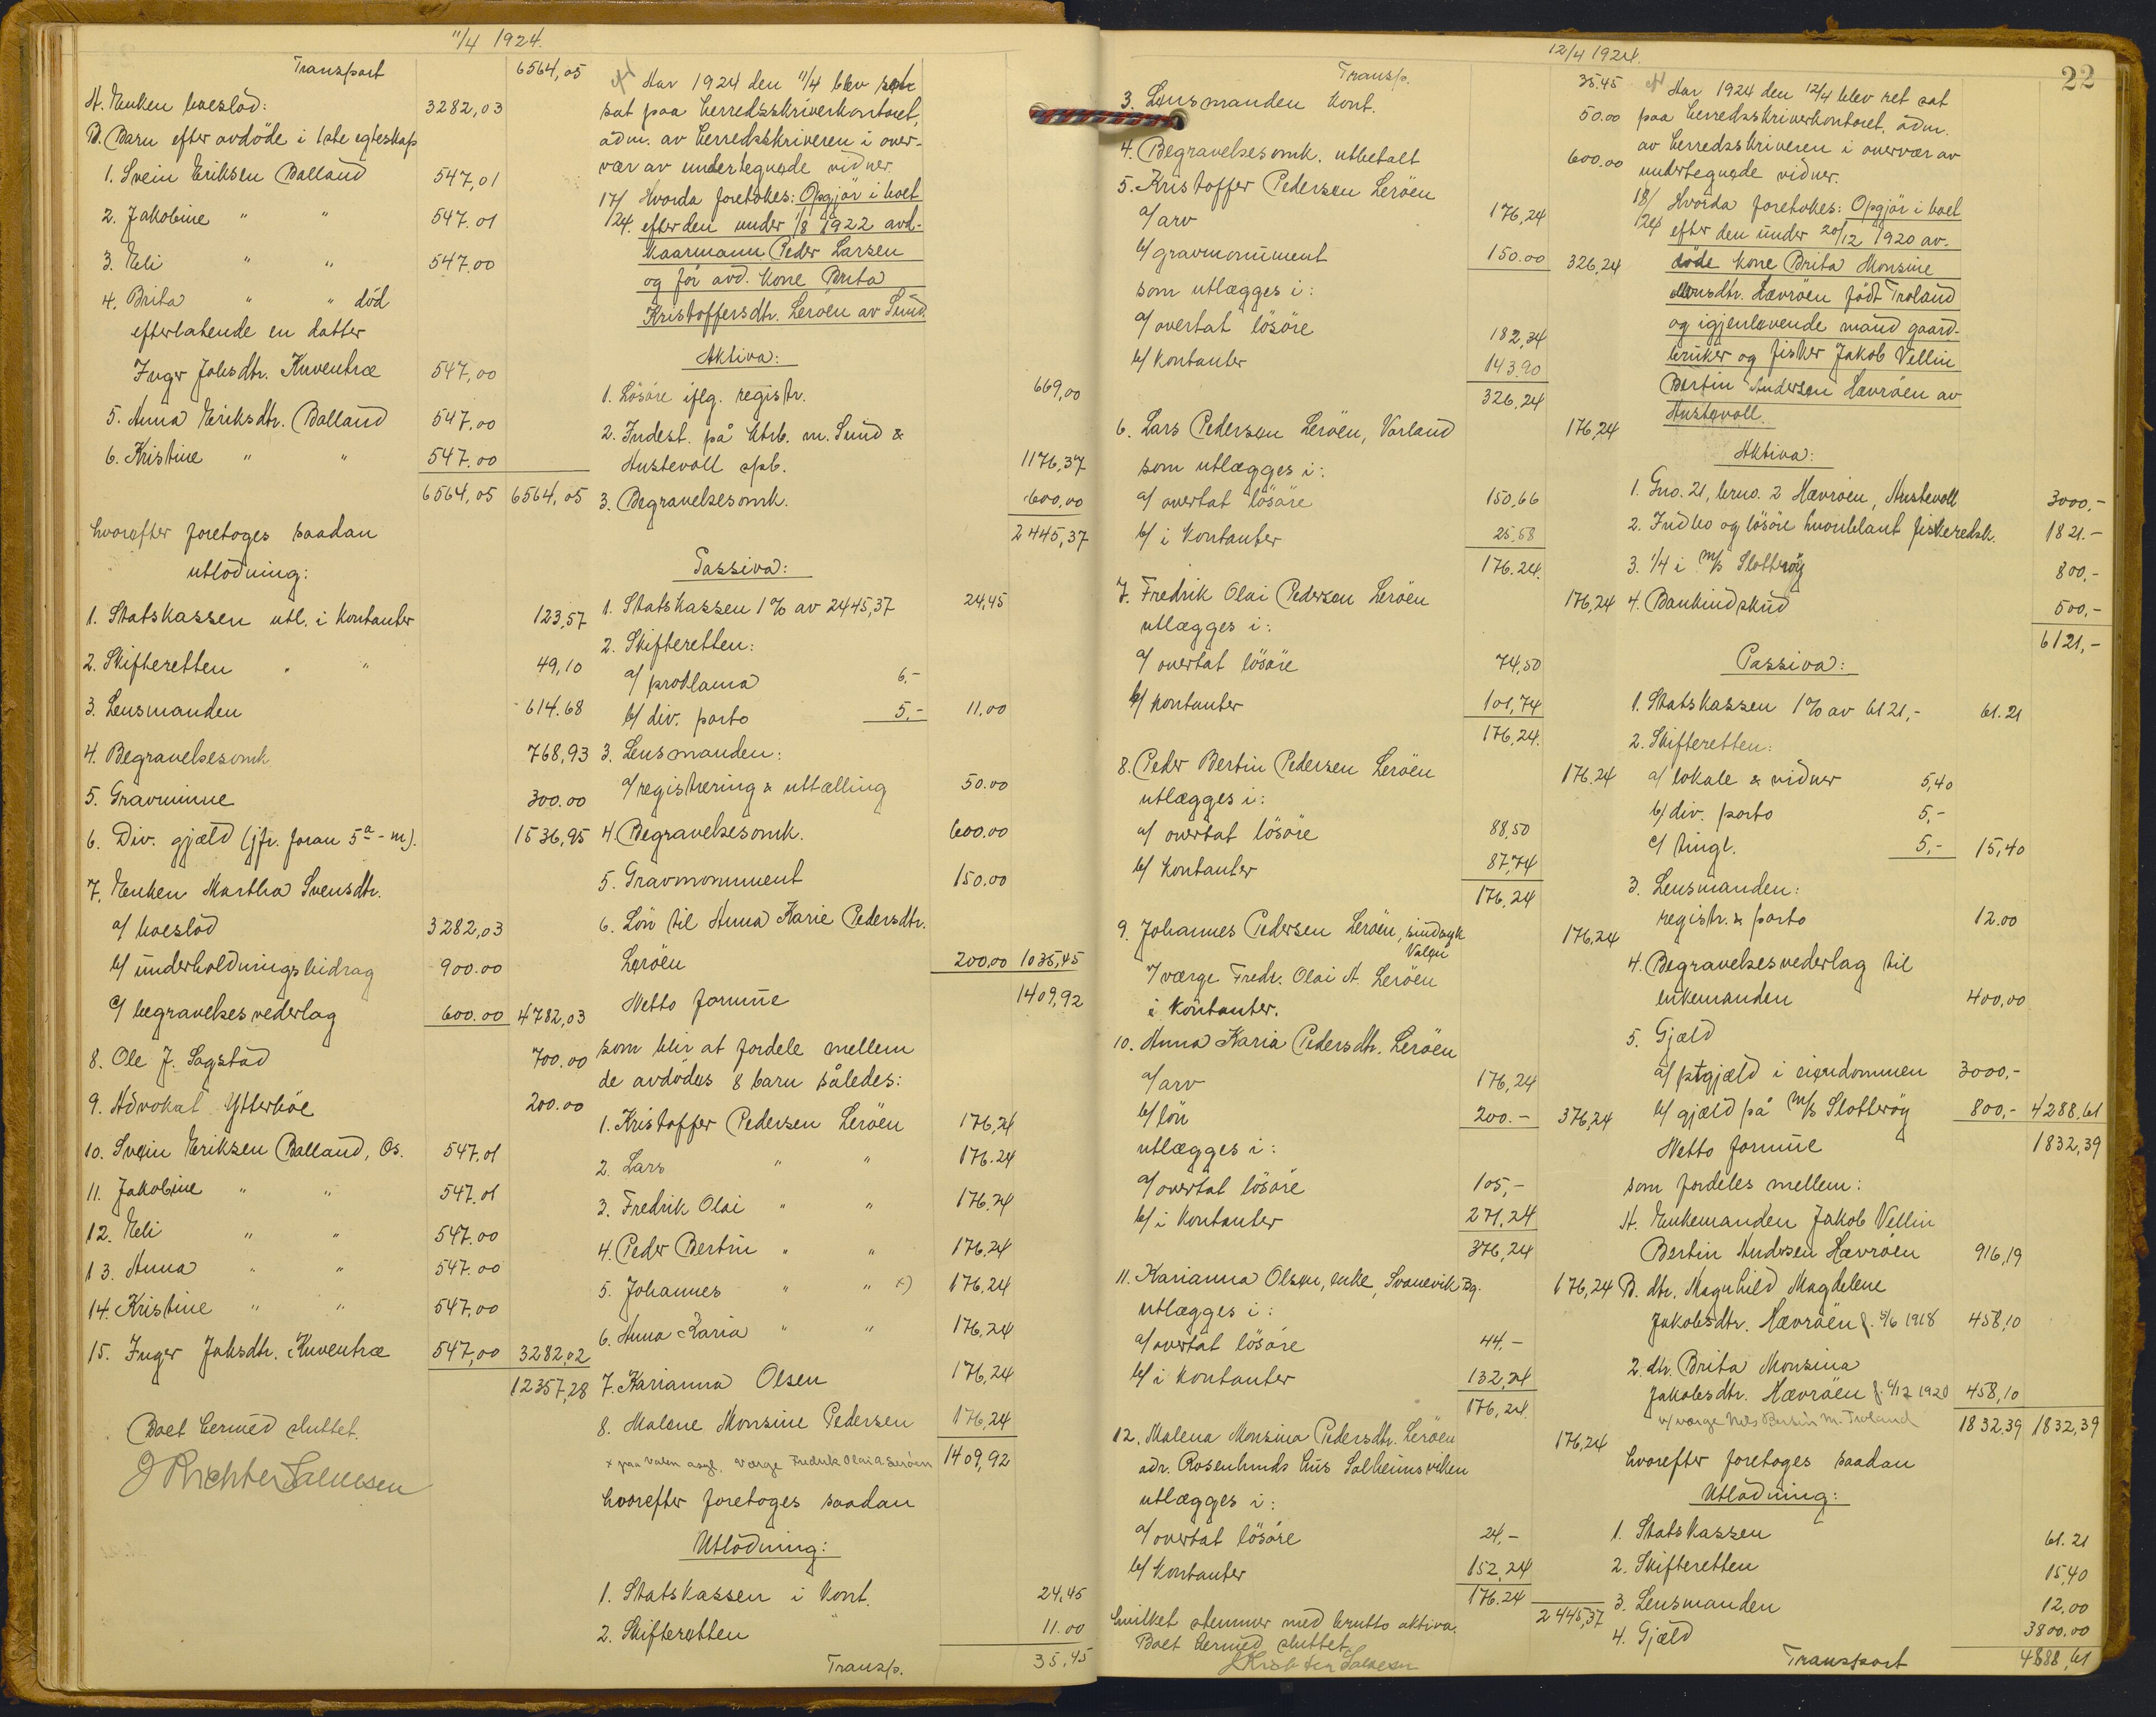 11/4 1924.
Transport 6564,05
A. Enken boeslod: 3282,03
B. Barn efter avdöde i 1ste egteskap
1. Svein Eriksen Balland 547,01
2. Jakobine " " 547.01
3. Eli " " 547.00
4. Brita " " död
efterlatende en datter
Inger Johsdtr. Kuventræ 547,00
5. Anna Eriksdtr. Balland 547,00
6. Kristine " " 547.00
6564,05 6564,05
hvorefter foretoges saadan
utlodning:
1. Statskassen utl. i kontanter 123,57
2. Skifteretten " " 49,10
3. Lensmanden 614.68
4. Begravelsesomk 768,93
5. Gravminne 300.00
6. Div. gjæld (jfr. foran 5a-m). 1536,95
7. Enken Martha Svensdtr.
a/ boeslod 3282,03
b/ underholdningsbidrag 900.00
c/ begravelsesvederlag 600.00 4782,03
8. Ole J. Sagstad 700.00
9. Advokat Ytterböe 200.00
10. Svein Eriksen Balland, Os. 547.01
11. Jakobine " " 547.01
12. Eli " " 547.00
13. Anna " " 547.00
14. Kristine " " 547,00
15. Inger Johsdtr. Kuventræ 547,00 3282,02
12357,28
Boet hermed sluttet.
J Richter Salvesen
Aar 1924 den 11/4 blev
sat paa herredsskriverkontoret,
adm. av herredsskriveren i over-
vær av undertegnede vidner.
17/24. Hvorda foretokes: Opgjör i boet
efter den under 1/8 1922 avd.
kaarmann Peder Larsen
og för avd. kone Brita
Kristoffersdtr. Leröen av Sund.
Aktiva:
1. Lösöre iflg. registr. 669,00
2. Indest. på ktrb. m. Sund &
Austevoll spb. 1176,37
3. Begravelsesomk. 600,00
2445,37
Passiva:
1. Statskassen 1% av 2445,37 24,45
2. Skifteretten:
a/ proklama 6,-
b/ div. porto 5,- 11,00
3. Lensmanden:
a/ registrering & uttælling 50.00
4. Begravelsesomk. 600.00
5. Gravmonument 150.00
6. Lön til Anna Karie Pedersdtr.
Leröen 200,00 1035,45
Netto formue 1409,92
som blir at fordele mellem
de avdödes 8 barn således:
1. Kristoffer Pedersen Leröen 176,24
2. Lars " " 176.24
3. Fredrik Olai " " 176,24
4. Peder Bertin " " 176,24
5. Johannes " " x) 176,24
6. Anna Karia " " 176,24
7. Karianna Olsen 176,24
8. Malene Monsine Pedersen 176,24
x paa Valen asyl. Værge Fredrik Olai A Leröen 1409,92
hvorefter foretoges saadan
Utlodning:
1. Statskassen i kont. 24,45
2. Skifteretten " 11.00
Transp. 35,45
12/4 1924.
22
Transp. 35.45
3. Lensmanden kont. 50.00
4. Begravelsesomk. utbetalt 600.00
5. Kristoffer Pedersen Leröen
a/ arv 176,24
b/ gravmonument 150.00 326,24
som utlægges i:
a/ overtat lösöre 182,34
b/ kontanter 143.90
326,24
6. Lars Pedersen Leröen, Vorland 176,24
som utlægges i:
a/ overtat lösöre 150,66
b/ i kontanter 25,58
176.24.
7. Fredrik Olai Pedersen Leröen 176,24
utlægges i:
a/ overtat lösöre 74,50
b/ kontanter 101,74
176,24.
8. Peder Bertin Pedersen Leröen 176.24
utlægges i:
a/ overtat lösöre 88,50
b/ kontanter 87,74
176,24
9. Johannes Pedersen Leröen, sindsyk 176,24
Valen
v/ værge Fredr. Olai A. Leröen
i kontanter.
10. Anna Karia Pedersdtr. Leröen
a/ arv 176,24
b/ lön 200.- 376,24
utlægges i:
a/ overtat lösöre 105,-
b/ i kontanter 271,24
376,24
11. Karianna Olsen, enke, Svanevik Bg. 176,24
utlægges i:
a/ overtat lösöre 44,-
b/ i kontanter 132,24
176,24.
12. Malena Monsina Pedersdtr. Leröen 176,24
adr. Rosenlunds hus Solheimsviken
utlægges i:
a/ overtat lösöre 24,-
b/ kontanter 152,24
176.24
2445,37
hvilket stemmer med brutto aktiva.
Boet hermed sluttet.
J Richter Salvesen
Aar 1924 den 12/4 blev ret sat
paa herredsskriverkontoret, adm.
av herredsskriveren i overvær av
undertegnede vidner.
18/24 Hvorda foretokes: Opgjör i boet
efter den under 20/12 1920 av-
döde kone Brita Monsine
Monsdtr. Hævröen födt Troland
og igjenlevende mand gaard-
bruker og fisker Jakob Vellin
Bertin Andersen Hævröen av
Austevoll.
Aktiva:
1. Gno. 21, brno. 2 Hævröen, Austevoll 3000,-
2. Indbo og lösöre hvoriblant fiskeredsk. 1821.-
3. 1/4 i m/s Slotteröy 800,-
4. Bankindskud 500,-
6121,-
Passiva:
1. Statskassen 1% av 6121,- 61.21
2. Skifteretten:
a/ lokale & vidner 5,40
b/ div. porto 5,-
c/ tingl. 5,- 15,40
3. Lensmanden:
registr. & porto 12.00
4. Begravelsesvederlag til
enkemanden 400,00
5. Gjæld
a/ ptgjæld i eiendommen 3000,-
b/ gjæld på m/s Slotteröy 800,- 4288,61
Netto formue 1832,39
som fordeles mellem:
A. Enkemanden Jakob Vellin
Bertin Andersen Hævröen 916,19
B. dtr. Magnhild Magdelene
Jakobsdtr. Hævröen f. 5/6 1918 458,10
2. dtr. Brita Monsina
Jakobsdtr. Hævröen f. 4/12 1920 458,10
v/ værge Nils Bertin M. Troland 1832,39 1832,39
hvorefter foretoges saadan
Utlodning:
1. Statskassen 61.21
2. Skifteretten 15,40
3. Lensmanden 12,00
4. Gjæld 3800.00
Transport 4888,61